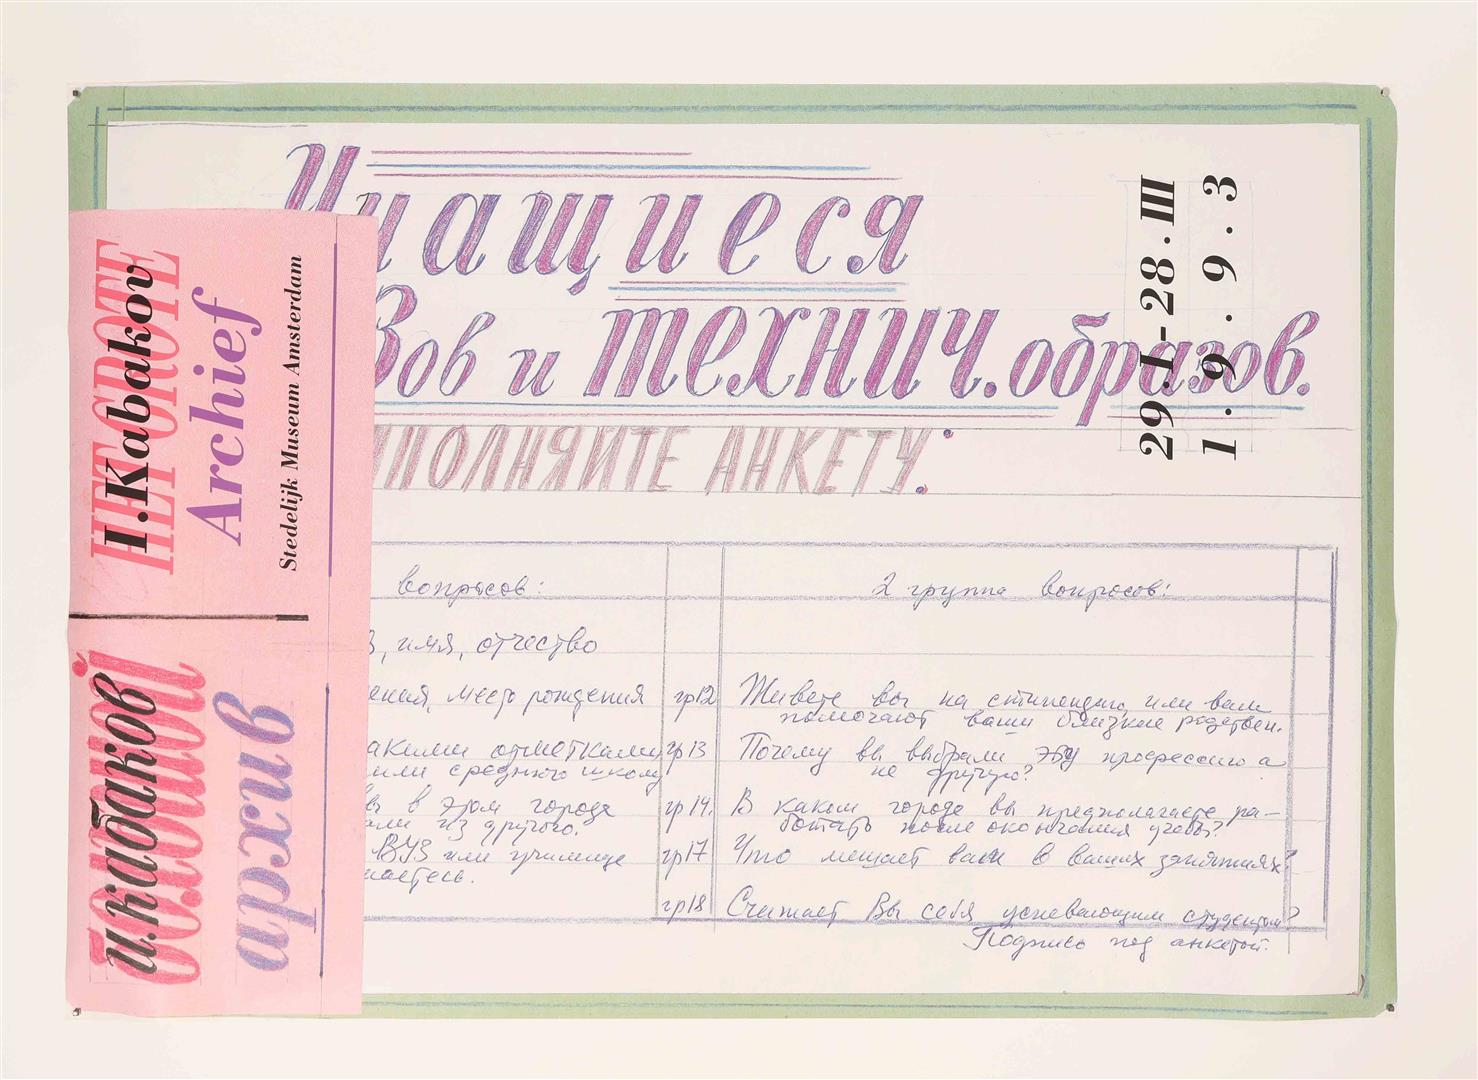 Учащиеся
Зов и технич. образов.
ПОЛНЯЙТЕ АНКЕТУ.
29.I-28.III
1.9.9.3
HET GROTE
I.Kabakov
Archief
Stedelijk Museum Amsterdam
большой
и.кабаков
архив
вопросов:
в, имя, отчество
ения, место рождения
акими отметками
или среднюю школу
вы в этом городе
али из другого.
ВУЗ или училище
маетесь.
2 группа вопросов:
гр12 Живете вы на стипендию или вам
помогают ваши близкие родствен.
гр13 Почему вы выбрали эту профессию а
не другую?
гр14. В каком городе вы предполагаете ра-
ботать после окончания учебы?
гр17 Что мешает вам в ваших занятиях?
гр18 Считает Вы себя успевающим студентом?
Подпись под анкетой.